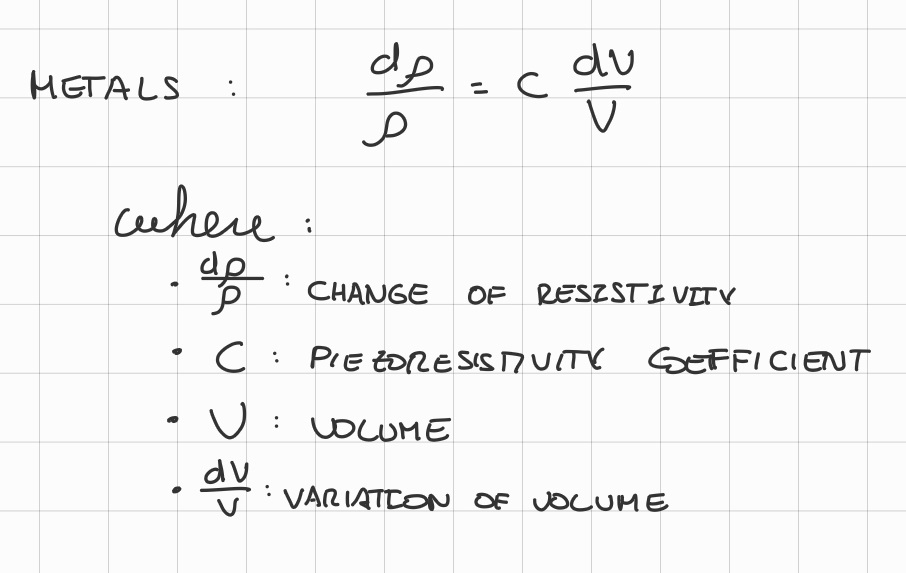 METALS : dρ/ρ = C dV/V
where :
· dρ/ρ : CHANGE OF RESISTIVITY
· C : PIEZORESISTIVITY COEFFICIENT
· V : VOLUME
· dV/V : VARIATION OF VOLUME